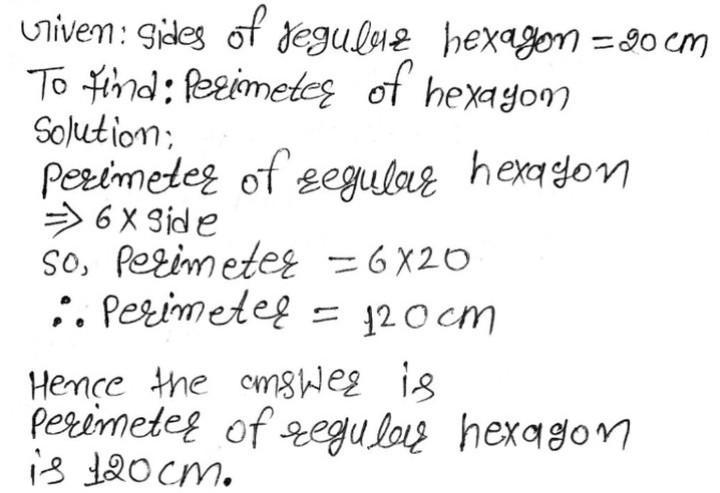 Given: Sides of regular hexagon = 20 cm
To find: Perimeter of hexagon
Solution:
Perimeter of regular hexagon
⇒ 6 X Side
So, Perimeter = 6 X 20
∴ Perimeter = 120 cm
Hence the answer is
Perimeter of regular hexagon
is 120 cm.